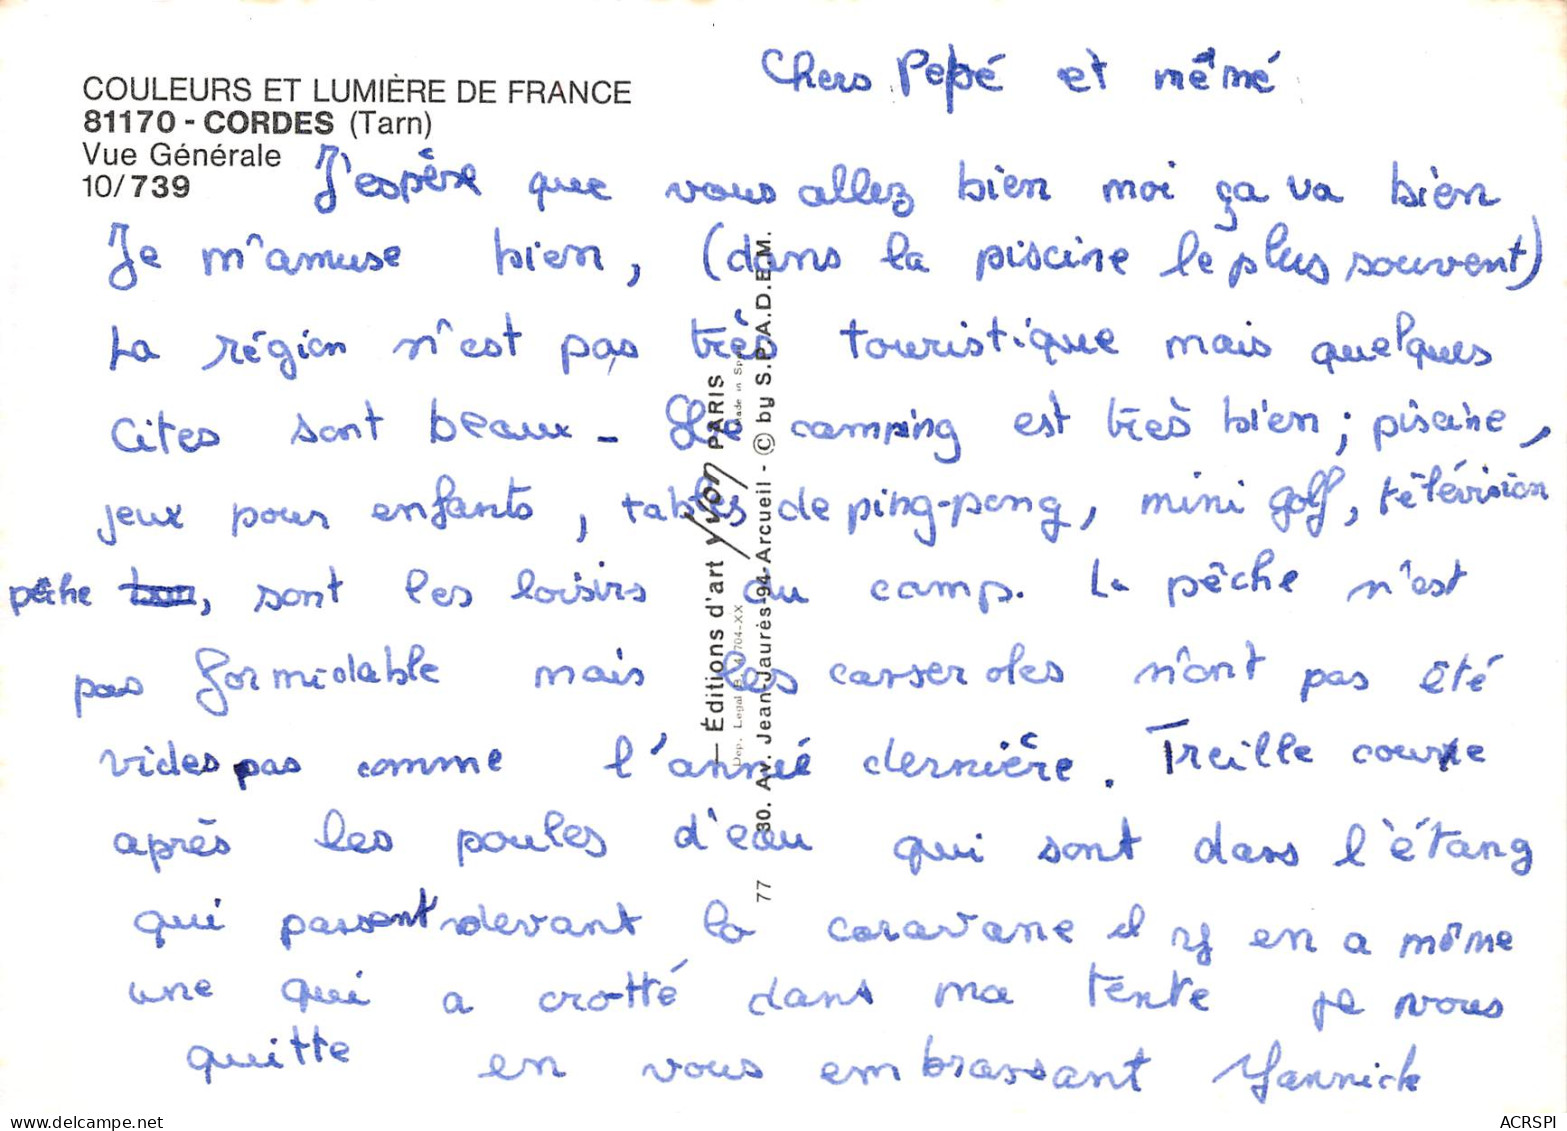 COULEURS ET LUMIÈRE DE FRANCE
81170 - CORDES (Tarn)
Vue Générale
10/739
Chers Pepé et mêmé
J'espère que vous allez bien moi ça va bien
Je m'amuse bien, (dans la piscine le plus souvent)
La région n'est pas très touristique mais quelques
cites sont beaux - Le camping est très bien ; piscine,
jeux pour enfants, tables de ping-pong, mini golf, télévision
pêche, sont les loisirs du camp. La pêche n'est
pas formidable mais les casseroles n'ont pas été
vides pas comme l'année dernière. Treille courre
après les poules d'eau qui sont dans l'étang
qui passent devant la caravane il y en a même
une qui a crotté dans ma tente je vous
quitte en vous embrassant Yannick
— Éditions d'art Yvon PARIS
Made in
Dep. Legal B. 4.704-XX
80. Av. Jean-Jaurès 94-Arcueil - © by S.P.A.D.E.M.
77
delcampe.net
ACRSPI